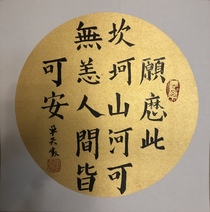 願麽此
坎坷山河可
無恙人間皆
可安